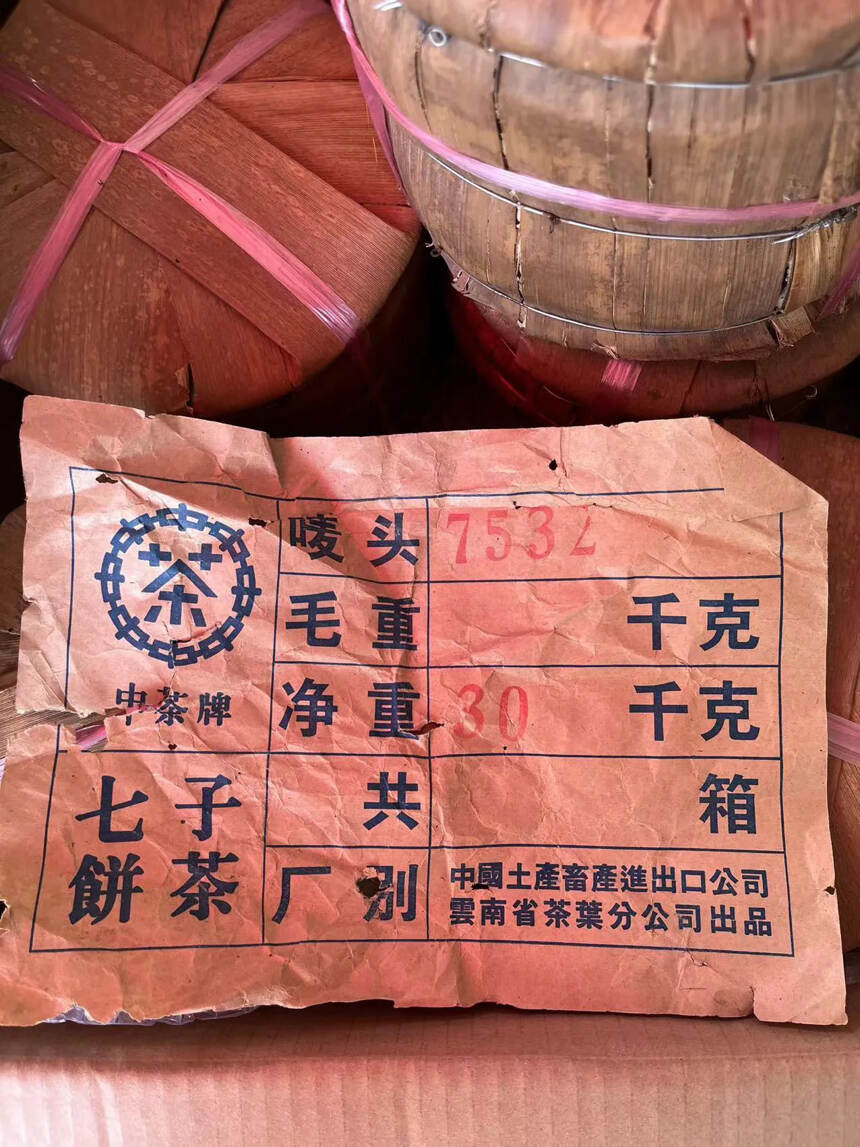 茶
中茶牌
唛头 7532
毛重 千克
净重 30 千克
七子
餅茶
共 箱
厂别
中國土產畜產進出口公司
雲南省茶葉分公司出品